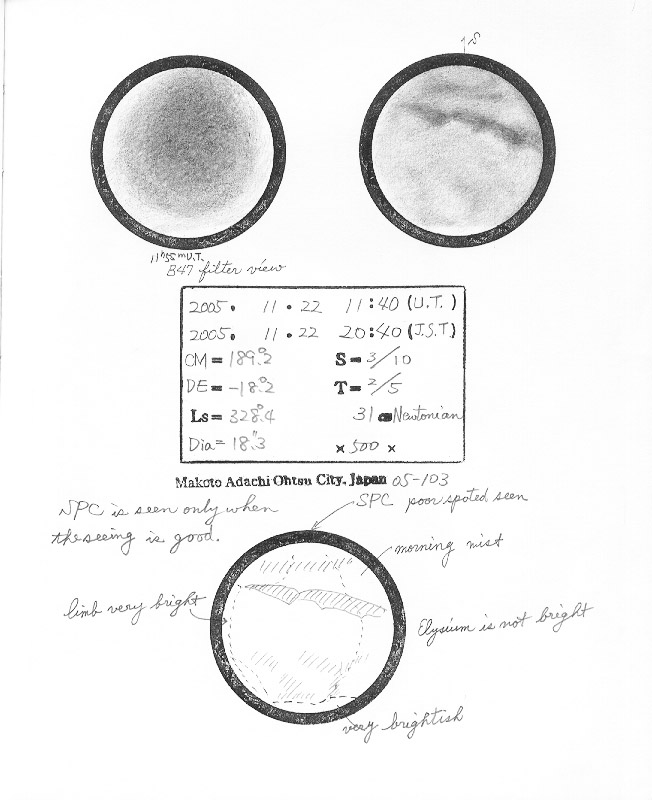 S
11h55mU.T.
B47 filter view
2005. 11.22 11:40 (U.T.)
2005. 11.22 20:40 (J.S.T)
CM = 189.°2 S = 3/10
DE = -18.°2 T = 2/5
Ls = 328.°4 31 cm Newtonian
Dia = 18."3 × 500 ×
Makoto Adachi Ohtsu City. Japan 05-103
SPC is seen only when
the seeing is good.
SPC poor spoted seen
morning mist
limb very bright
Elysium is not bright
very brightish